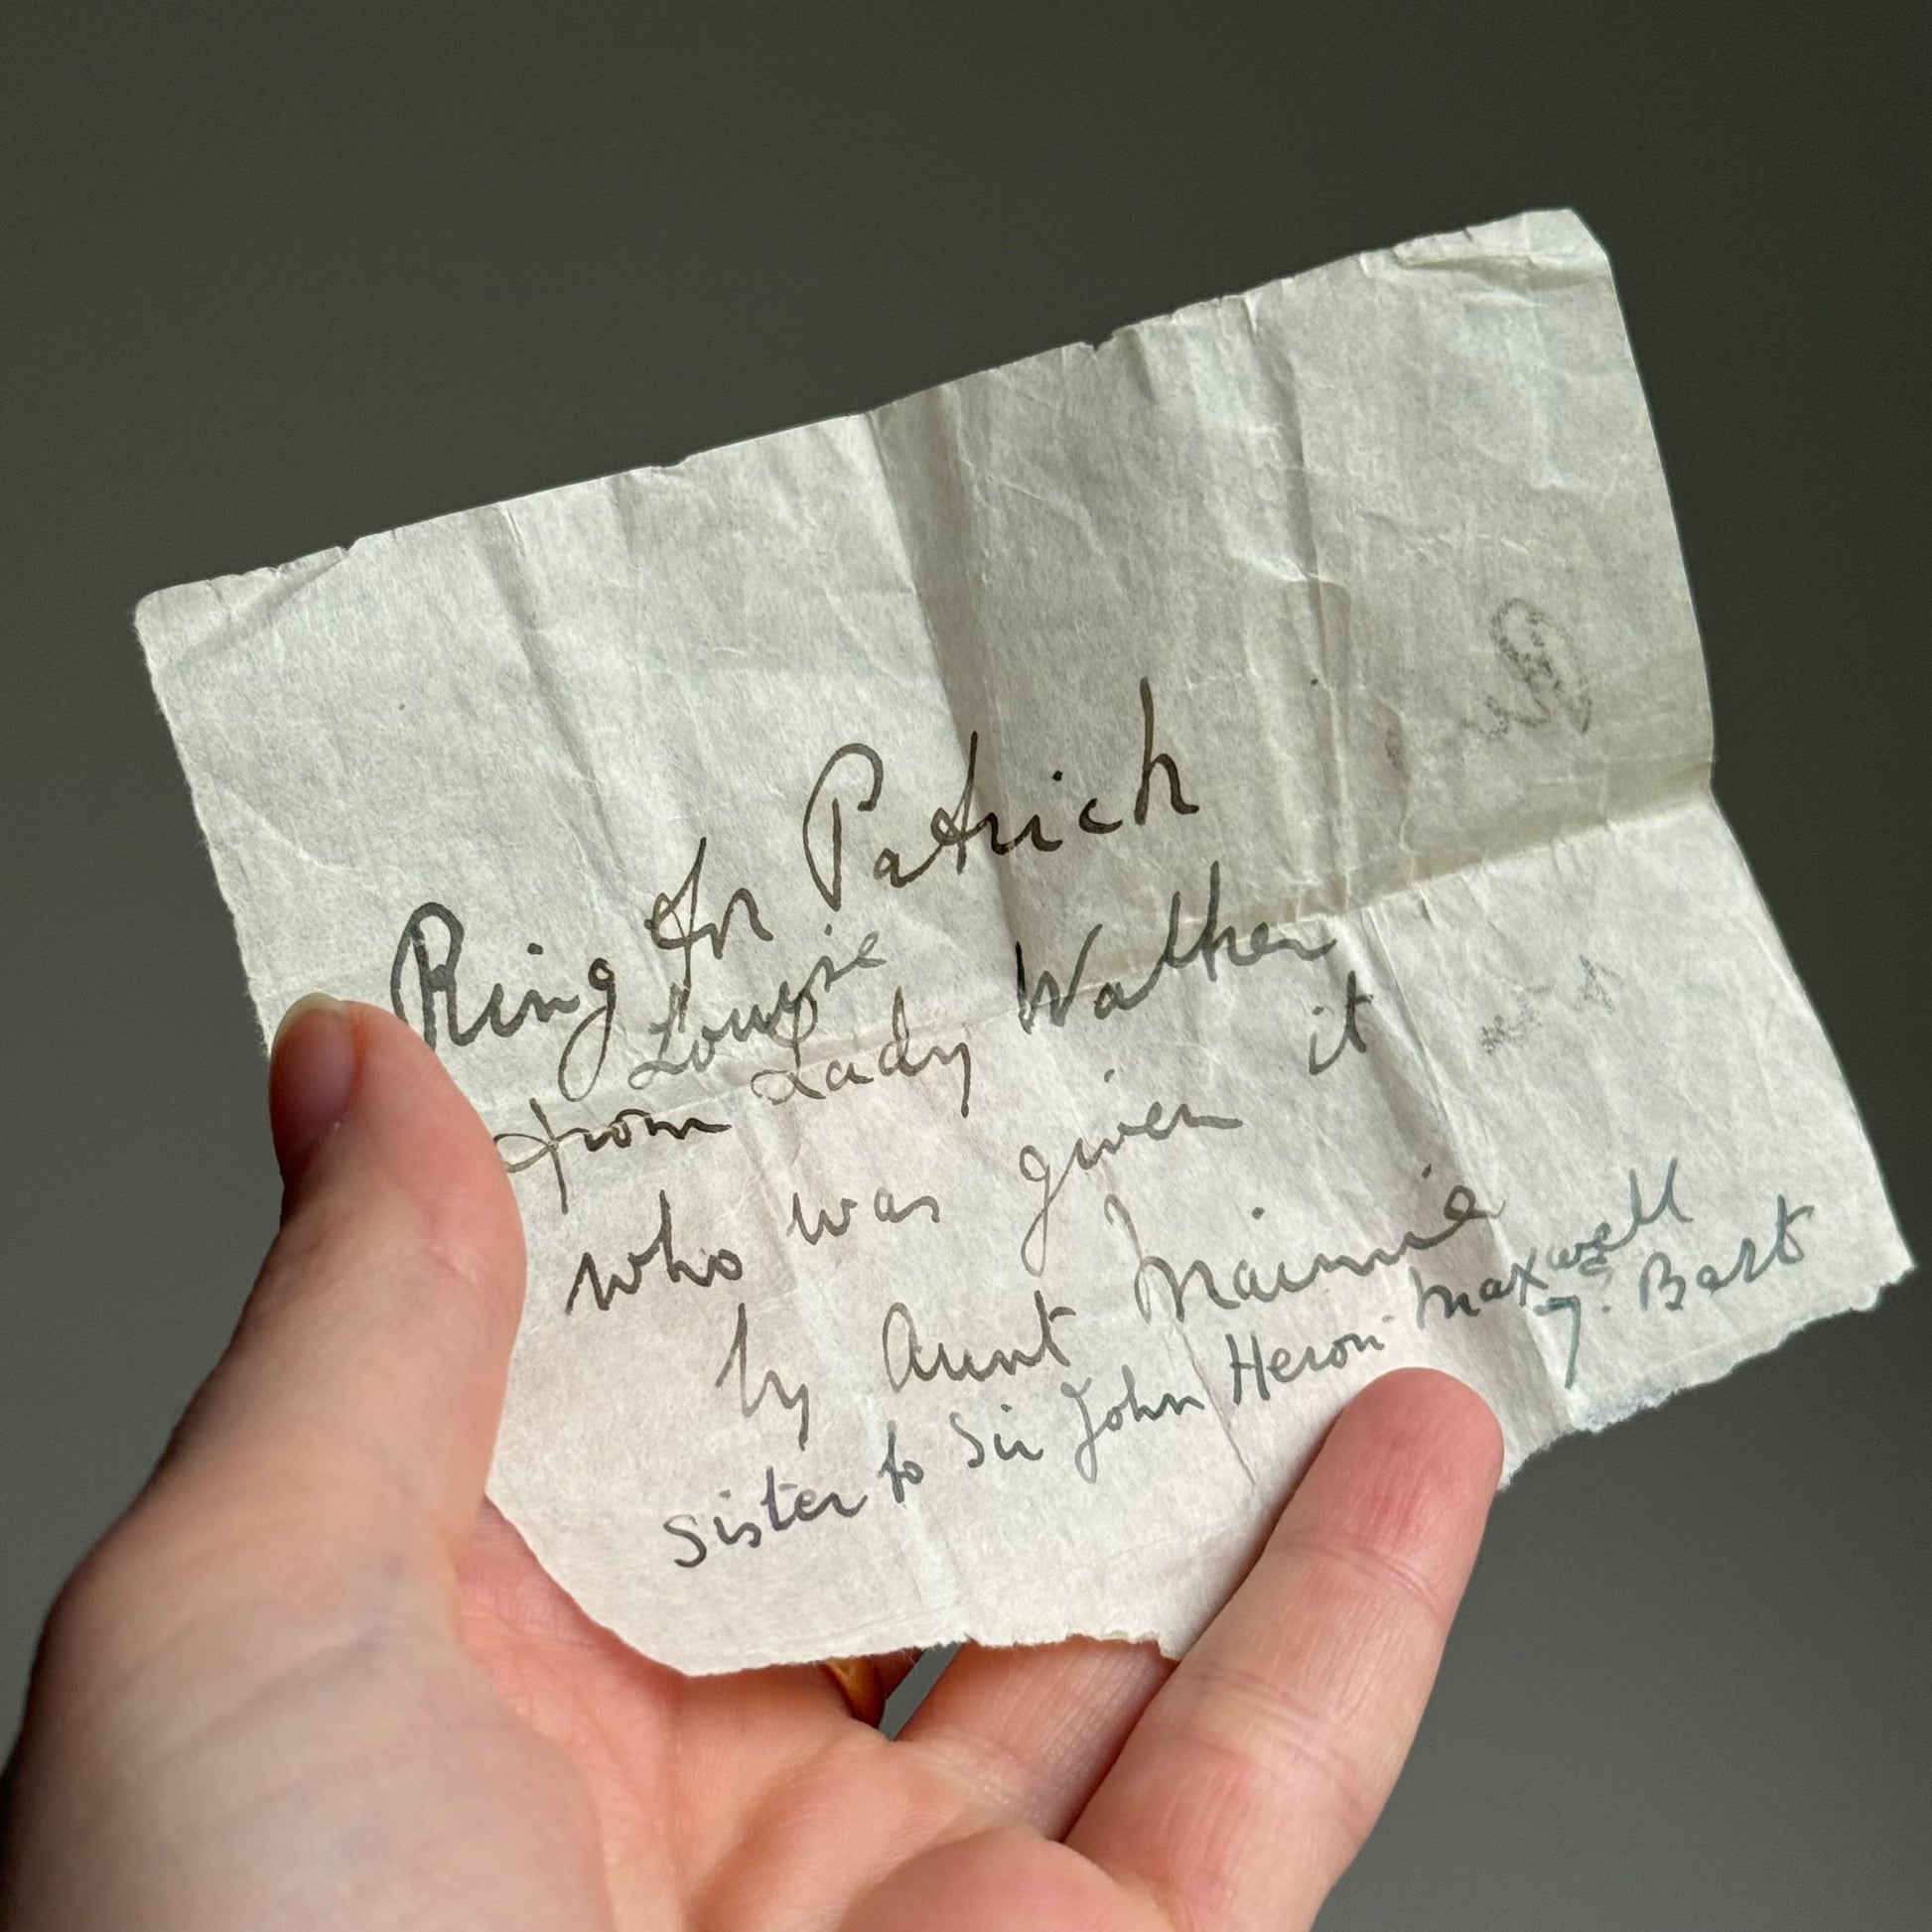 Ring for Patrick
Louise
from Lady Walker
who was given it
by Aunt Mainnie
Sister to Sir John Heron-Maxwell
7. Bart